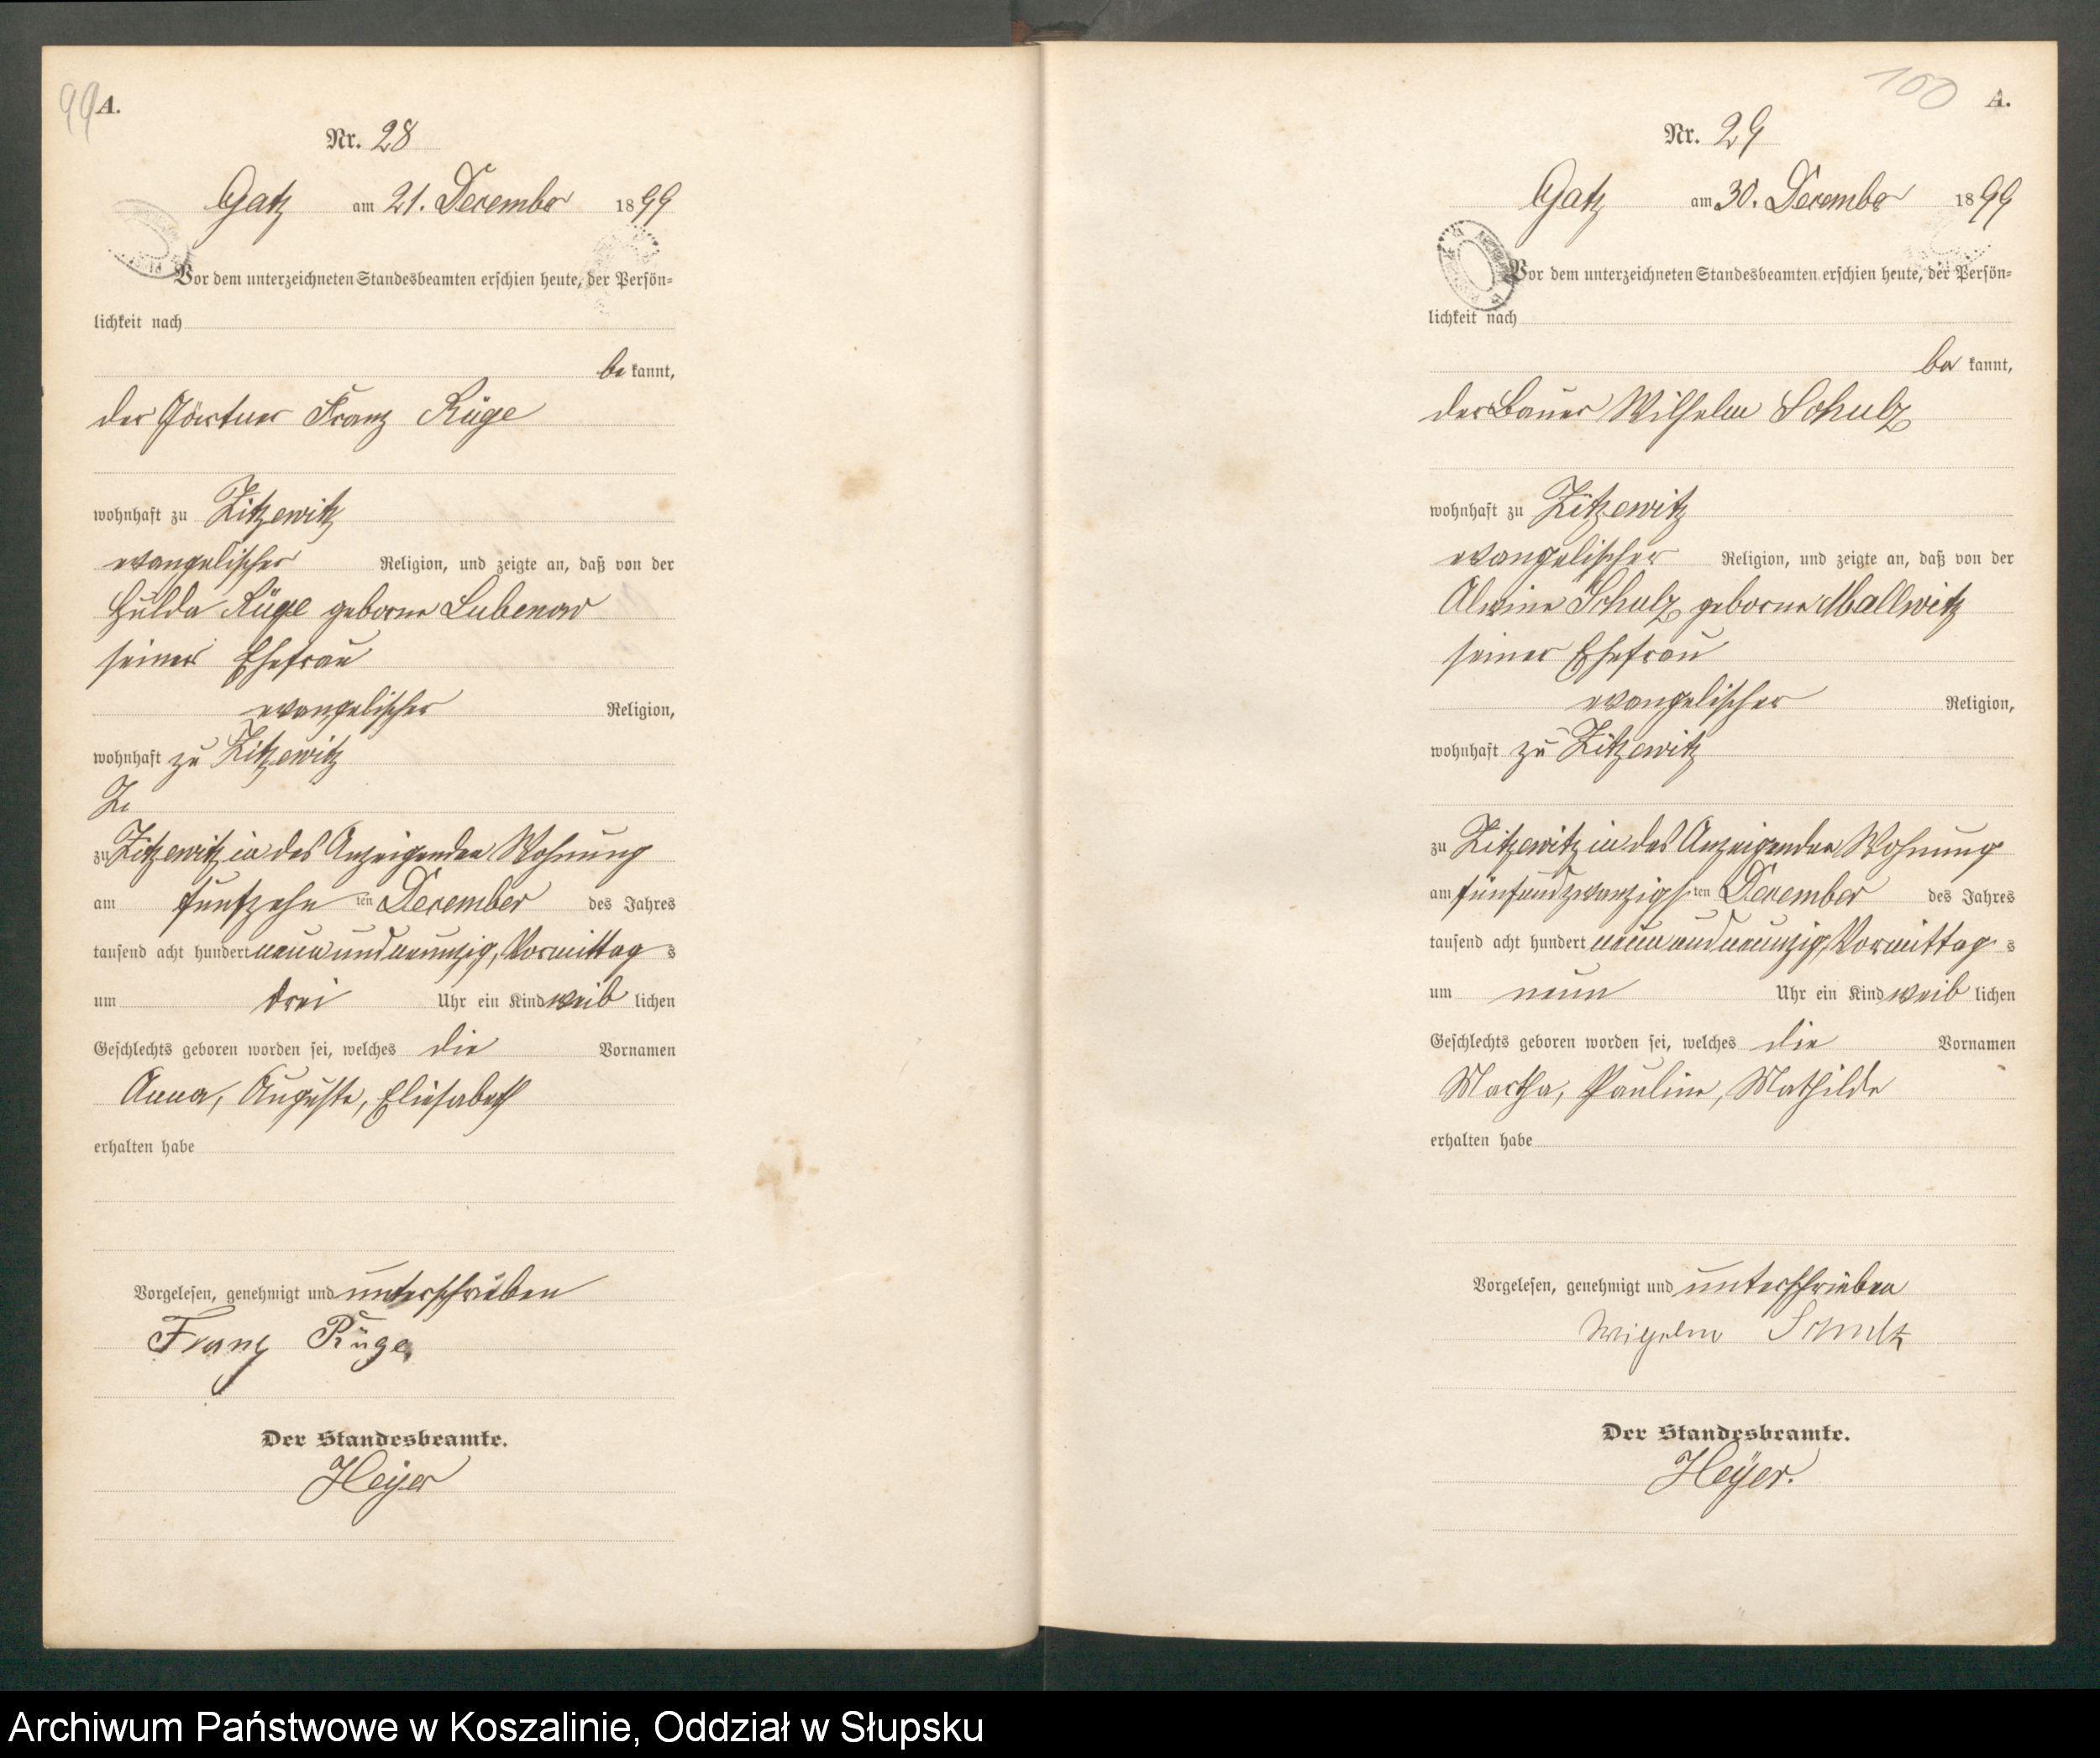 99 A.
Nr. 28
Gatz am 21. December 1899
Vor dem unterzeichneten Standesbeamten erschien heute, der Persön=
lichkeit nach
be kannt,
der Gärtner Franz Rüge
wohnhaft zu Zitzewitz
evangelischer Religion, und zeigte an, daß von der
Hulda Rüge geborne Lubenow
seiner Ehefrau
evangelischer Religion,
wohnhaft zu Zitzewitz
Zi
zu Zitzewitz in des Anzeigenden Wohnung
am fünfzehn ten December des Jahres
tausend acht hundert neun und neunzig, Vormittag s
um drei Uhr ein Kind weib lichen
Geschlechts geboren worden sei, welches die Vornamen
Anna, Auguste, Eliesabeth
erhalten habe
Vorgelesen, genehmigt und unterschrieben
Franz Rüge
Der Standesbeamte.
Heyer
100 A.
Nr. 29
Gatz am 30. December 1899
Vor dem unterzeichneten Standesbeamten erschien heute, der Persön=
lichkeit nach
be kannt,
der Bauer Wilhelm Schulz
wohnhaft zu Zitzewitz
evangelischer Religion, und zeigte an, daß von der
Alwine Schulz geborne Mallwitz
seiner Ehefrau
evangelischer Religion,
wohnhaft zu Zitzewitz
zu Zitzewitz in des Anzeigenden Wohnung
am fünfundzwanzigs ten December des Jahres
tausend acht hundert neun und neunzig, Vormittag s
um neun Uhr ein Kind weib lichen
Geschlechts geboren worden sei, welches die Vornamen
Martha, Pauline, Mathilde
erhalten habe
Vorgelesen, genehmigt und unterschrieben
Wilhelm Schulz
Der Standesbeamte.
Heyer.
Archiwum Państwowe w Koszalinie, Oddział w Słupsku